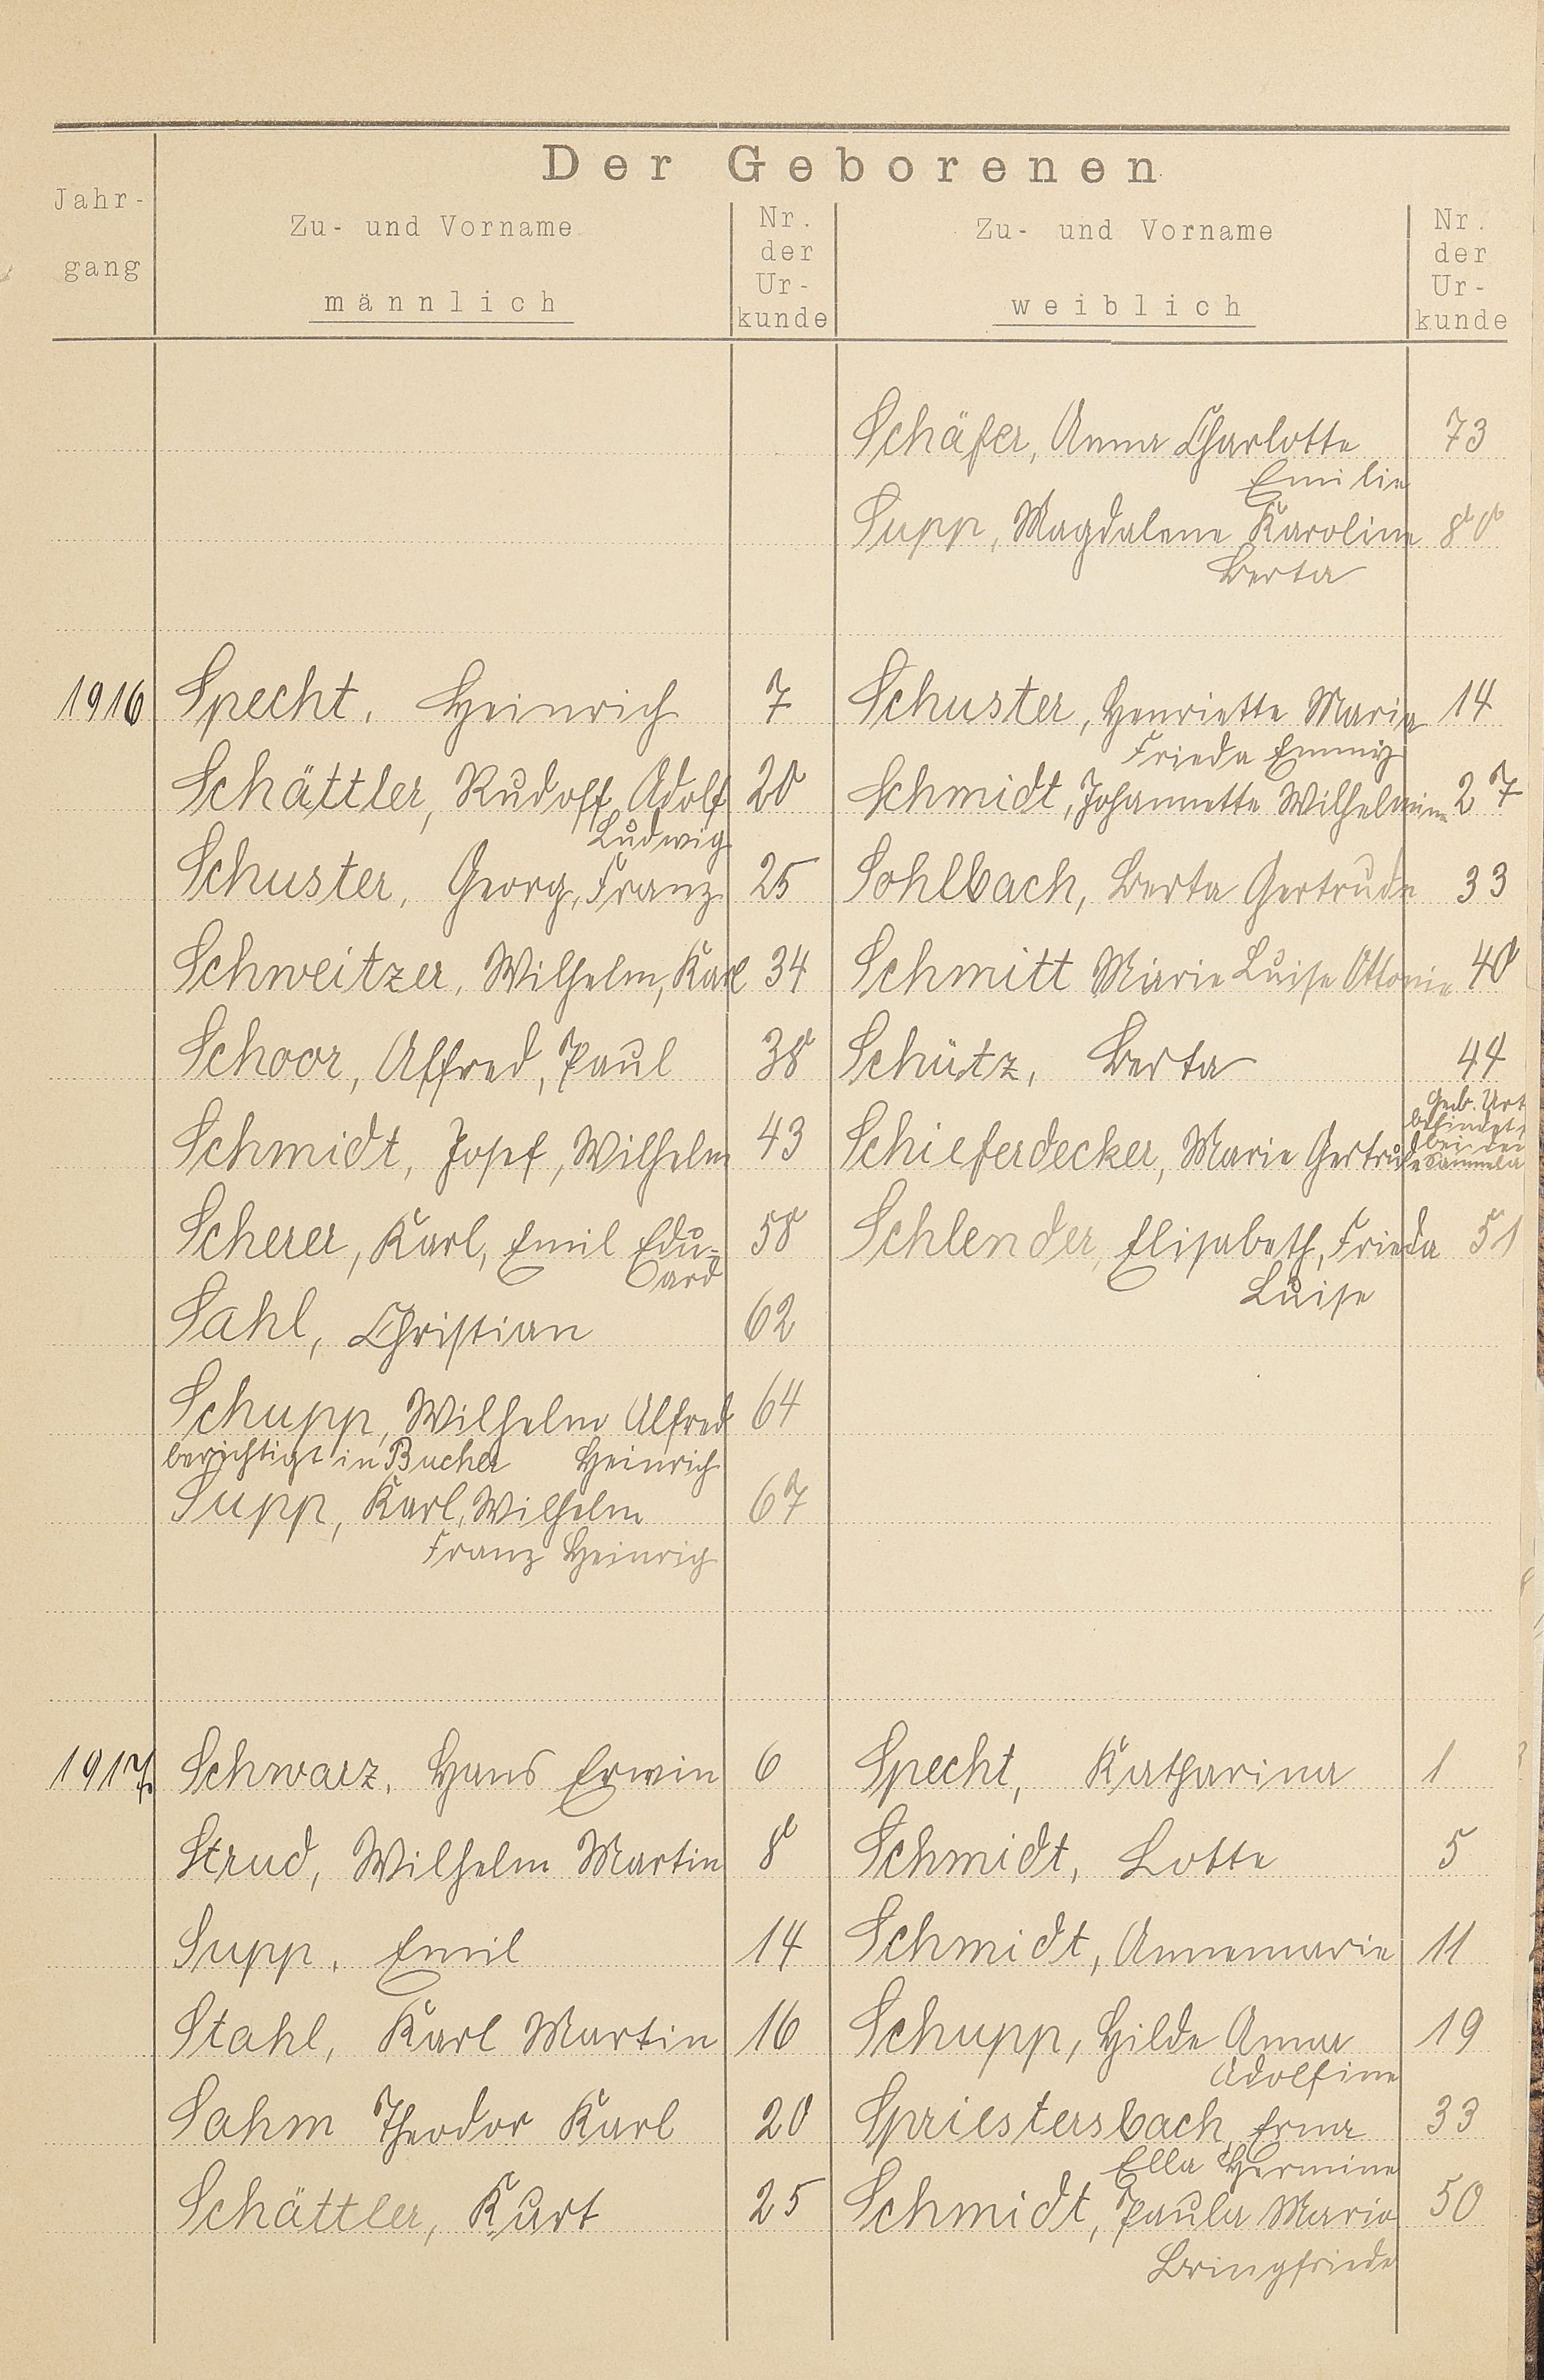 Der Geborenen
Jahr-
gang
Zu- und Vorname
männlich
Nr.
der
Ur-
kunde
Zu- und Vorname
weiblich
Nr.
der
Ur-
kunde
Schäfer, Anna Charlotte 73
Emilie
Supp, Magdalene Karoline 80
Berta
1916 Specht, Heinrich 7 Schuster, Henriette Marie 14
Frieda Emmy
Schättler, Rudolf, Adolf 20 Schmidt, Johannette Wilhelmine 27
Ludwig
Schuster, Georg, Franz 25 Sohlbach, Berta Gertrude 33
Schweitzer, Wilhelm, Karl 34 Schmitt Marie Luise Ottonie 40
Schoor, Alfred, Paul 38 Schütz, Berta 44
Geb. Urk
befindet
bei der
Sammela
Schmidt, Josef, Wilhelm 43 Schieferdecker, Marie Gertrude
Scherer, Karl, Emil Edu- 58 Schlender, Elisabeth, Frieda 51
ard
Luise
Sahl, Christian 62
Schupp, Wilhelm Alfred 64
berichtigt in Bucher Heinrich
Supp, Karl, Wilhelm 67
Franz Heinrich
1917 Schwarz, Hans Erwin 6 Specht, Katharina 1
Strud, Wilhelm Martin 8 Schmidt, Lotte 5
Supp, Emil 14 Schmidt, Annemarie 11
Stahl, Karl Martin 16 Schupp, Hilde Anna 19
Adolfine
Sahm Theodor Karl 20 Spriestersbach, Erna 33
Ella Hermine
Schättler, Kurt 25 Schmidt, Paula Maria 50
Bringfriede